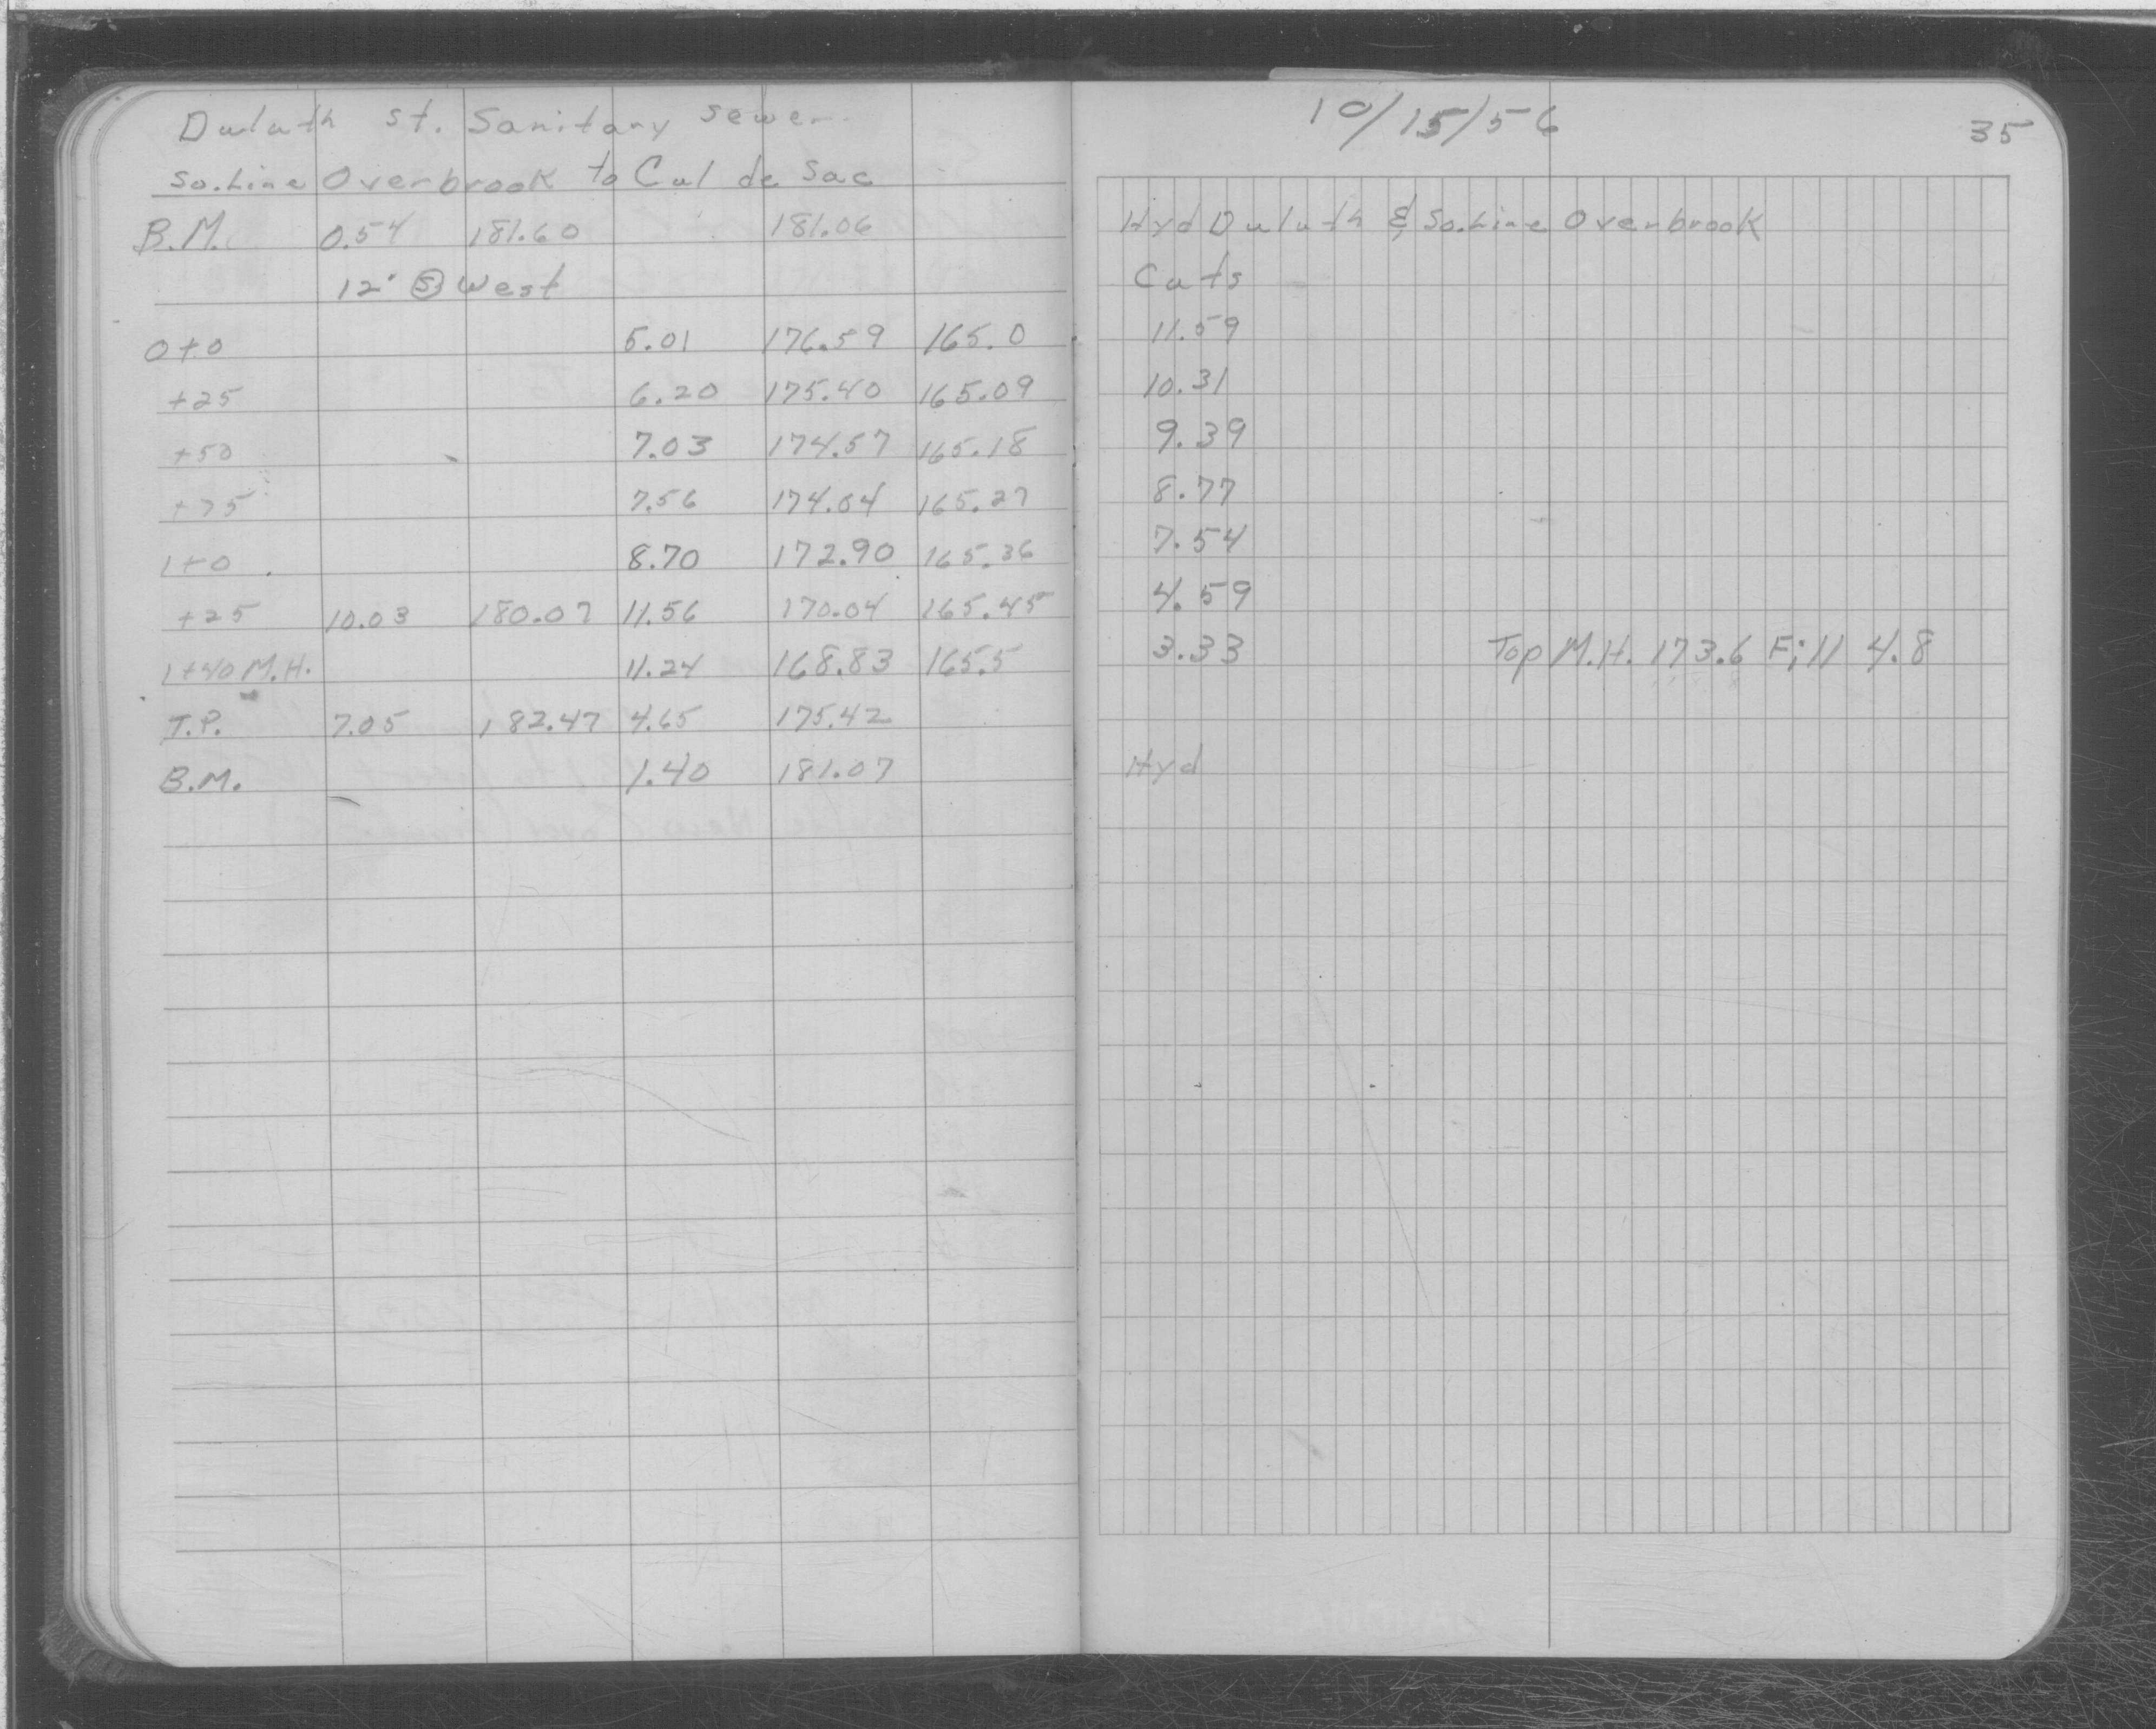 Duluth St. Sanitary Sewer
So. Line Overbrook to Cul de Sac
B.M. 0.54 181.60 181.06
12' Ⓢ West
0+0 5.01 176.59 165.0
+25 6.20 175.40 165.09
+50 7.03 174.57 165.18
+75 7.56 174.04 165.27
1+0 8.70 172.90 165.36
+25 10.03 180.07 11.56 170.04 165.45
1+40 M.H. 11.24 168.83 165.5
T.P. 7.05 182.47 4.65 175.42
B.M. 1.40 181.07
10/15/56
35
Hyd Duluth & So. Line Overbrook
Cuts
11.59
10.31
9.39
8.77
7.54
4.59
3.33 Top M.H. 173.6 Fill 4.8
Hyd